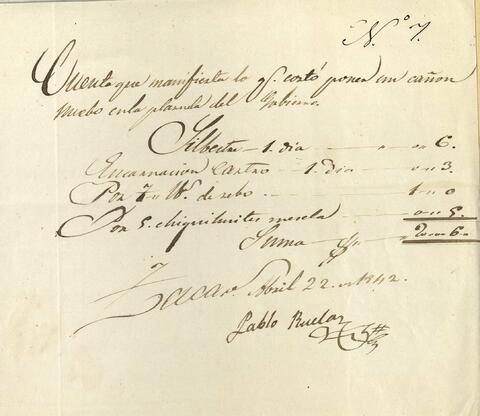 N.º 7.
Cuenta que manifiesta lo q.e costó poner un cañon
nuebo en la planda del Gobierno.
Silbestre - 1. dia - " - " 6.
Encarnacion Castro - 1. dia - " " 3.
Por 7 " lls. de sebo - 1 " 0
Por 5. chiquihuites mescla - 0 " 5.
Suma - 2 " 6 "
Zacas. Abril 22. " 1842.
Pablo Ruelas